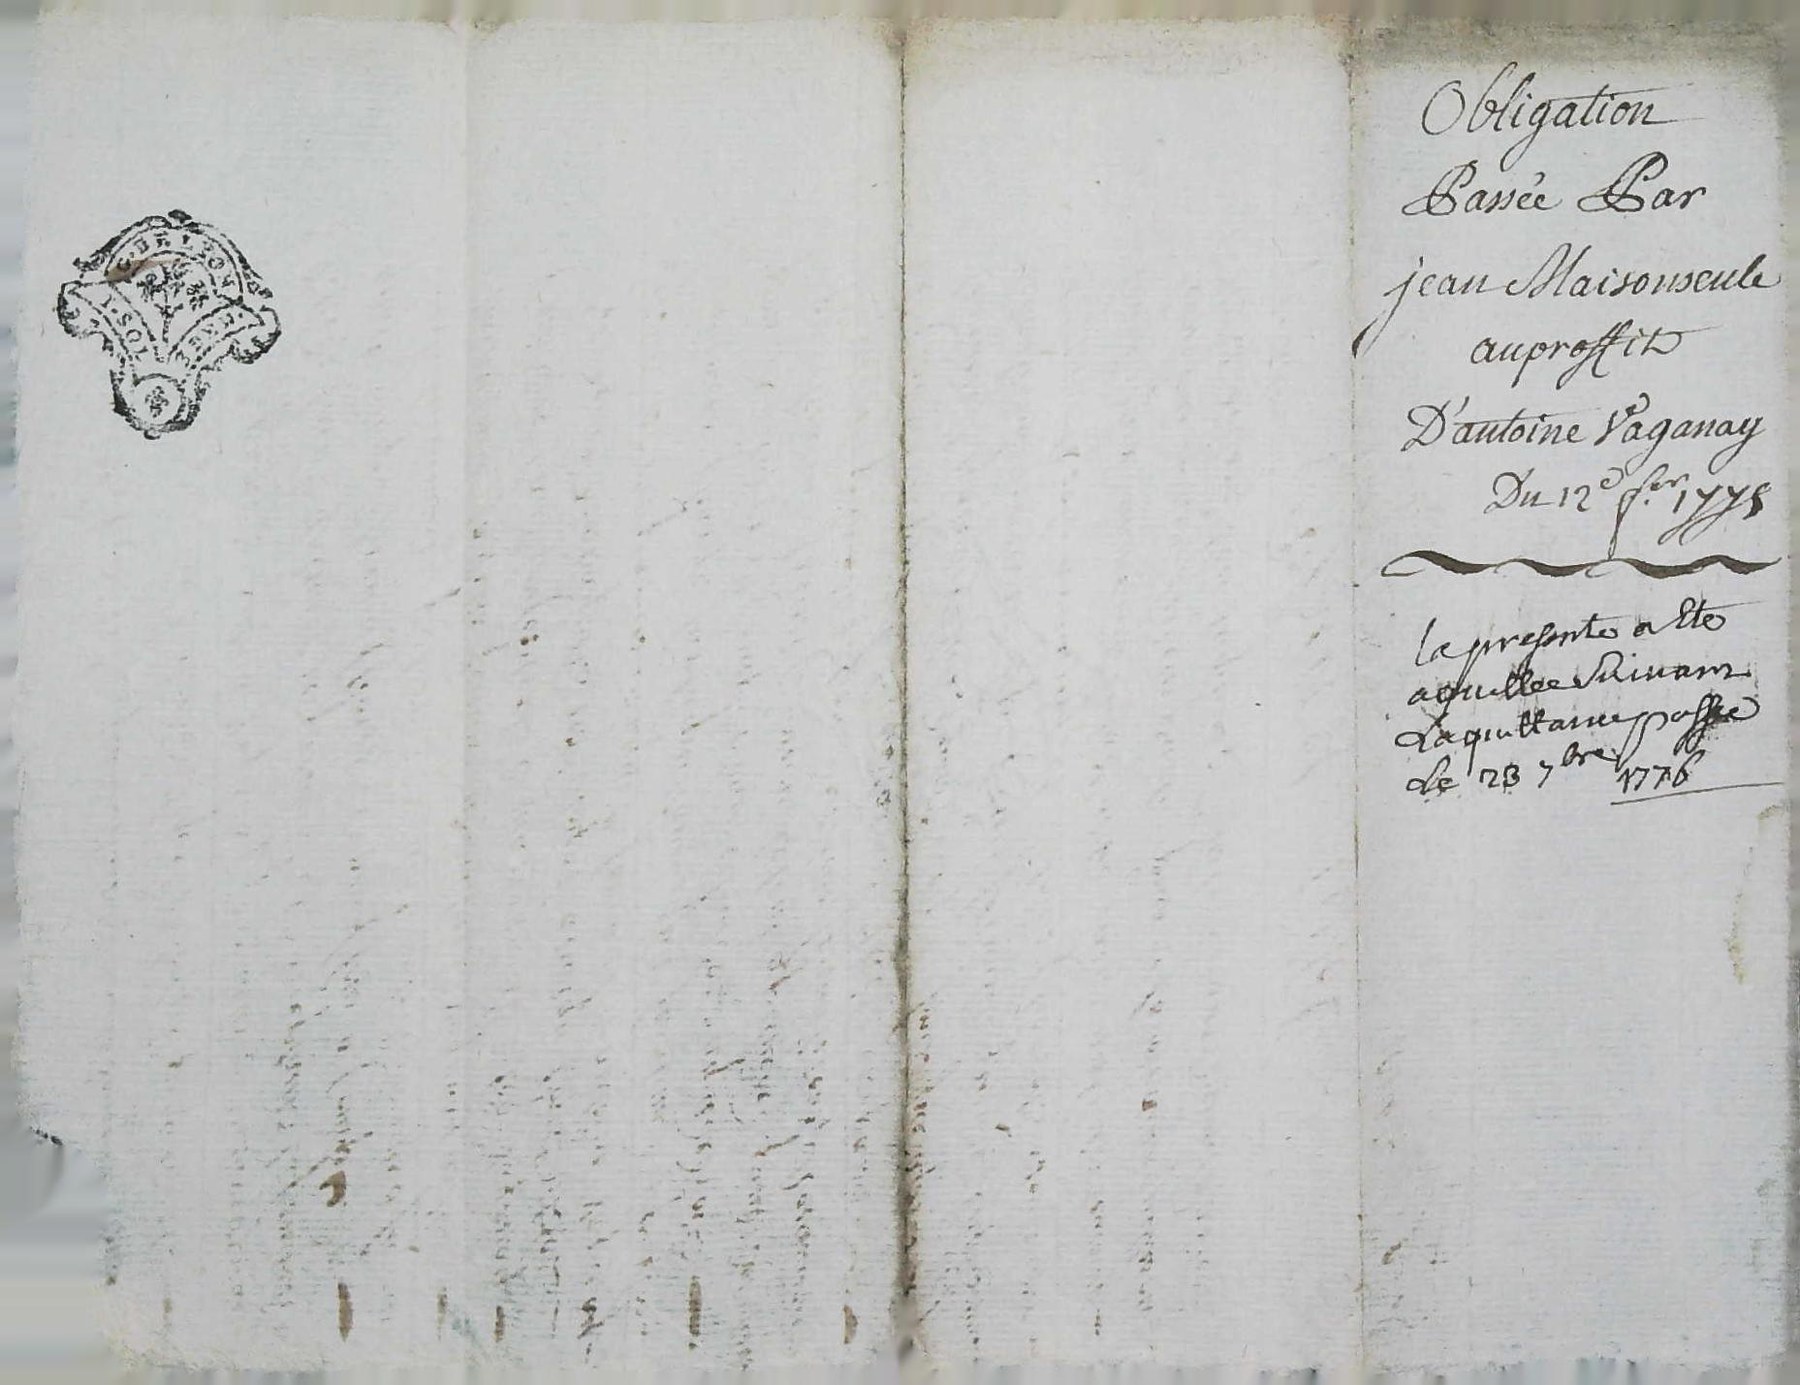 G. DE LYON
1. SOL
Obligation
Passée Par
jean Maisonseule
au proffit
D'antoine Vaganay
Du 12e f.er 1775
la presente a Ete
aquittee Suivant
La quittance passée
Le 23 7bre 1776